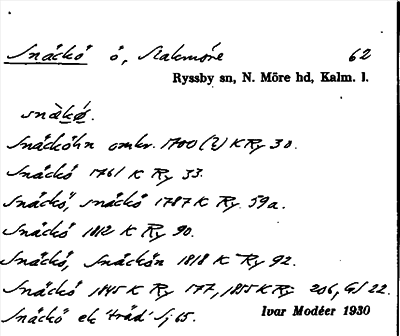 Snäckö ö, Stakmöre 62
Ryssby sn, N. Möre hd, Kalm. l.
snäkö.
Snäcköhn omkr. 1700 (?) K Ry 30.
Snäckö 1761 K Ry 33.
Snäckö, snäckö 1787 K Ry 59a.
Snäckö 1812 K Ry 90.
Snäckö, Snäckön 1818 K Ry 92.
Snäckö 1845 K Ry 177, 1855 K Ry 206, GJ 22.
Snäckö ek 'träd' Sj 65. Ivar Modéer 1930